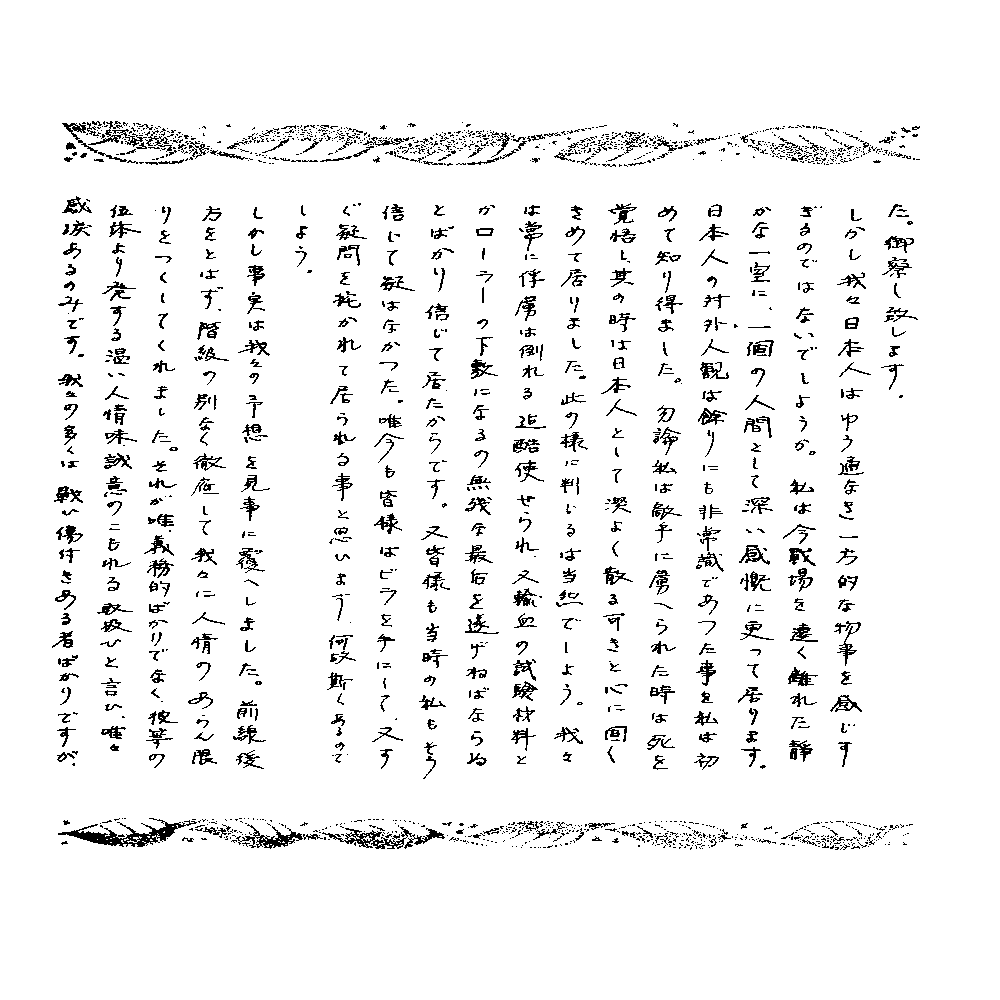 た。御察し致します。
しかし我々日本人はゆう通なき一方的な物事を感じす
ぎるのではないでしようか。私は今戦場を遠く離れた静
かな一室に、一個の人間として深い感慨に更つて居ります。
日本人の対外人観は餘りにも非常識であつた事を私は初
めて知り得ました。勿論私は敵手に虜へられた時は死を
覚悟し、其の時は日本人として潔よく散る可きと心に固く
きめて居りました。此の様に判じるは当然でしよう。我々
は常に俘虜は倒れる迄酷使せられ、又輸血の試験材料と
かローラーの下敷になるの無残な最后を遂げねばならぬ
とばかり信じて居たからです。又皆様も当時の私もそう
信じて疑はなかつた。唯今も皆様はビラを手にして、又す
ぐ疑問を抱かれて居られる事と思ひます、何故斯くあるので
しよう。
しかし事実は我々の予想を見事に覆へしました。前線後
方をとはず、階級の別なく徹底して我々に人情のあらん限
りをつくしてくれました。それが唯、義務的ばかりでなく、彼等の
伍体より発する温い人情味誠意のこもれる取扱ひと言ひ、唯々
感涙あるのみです。我々の多くは戦ひ傷付きある者ばかりですが、